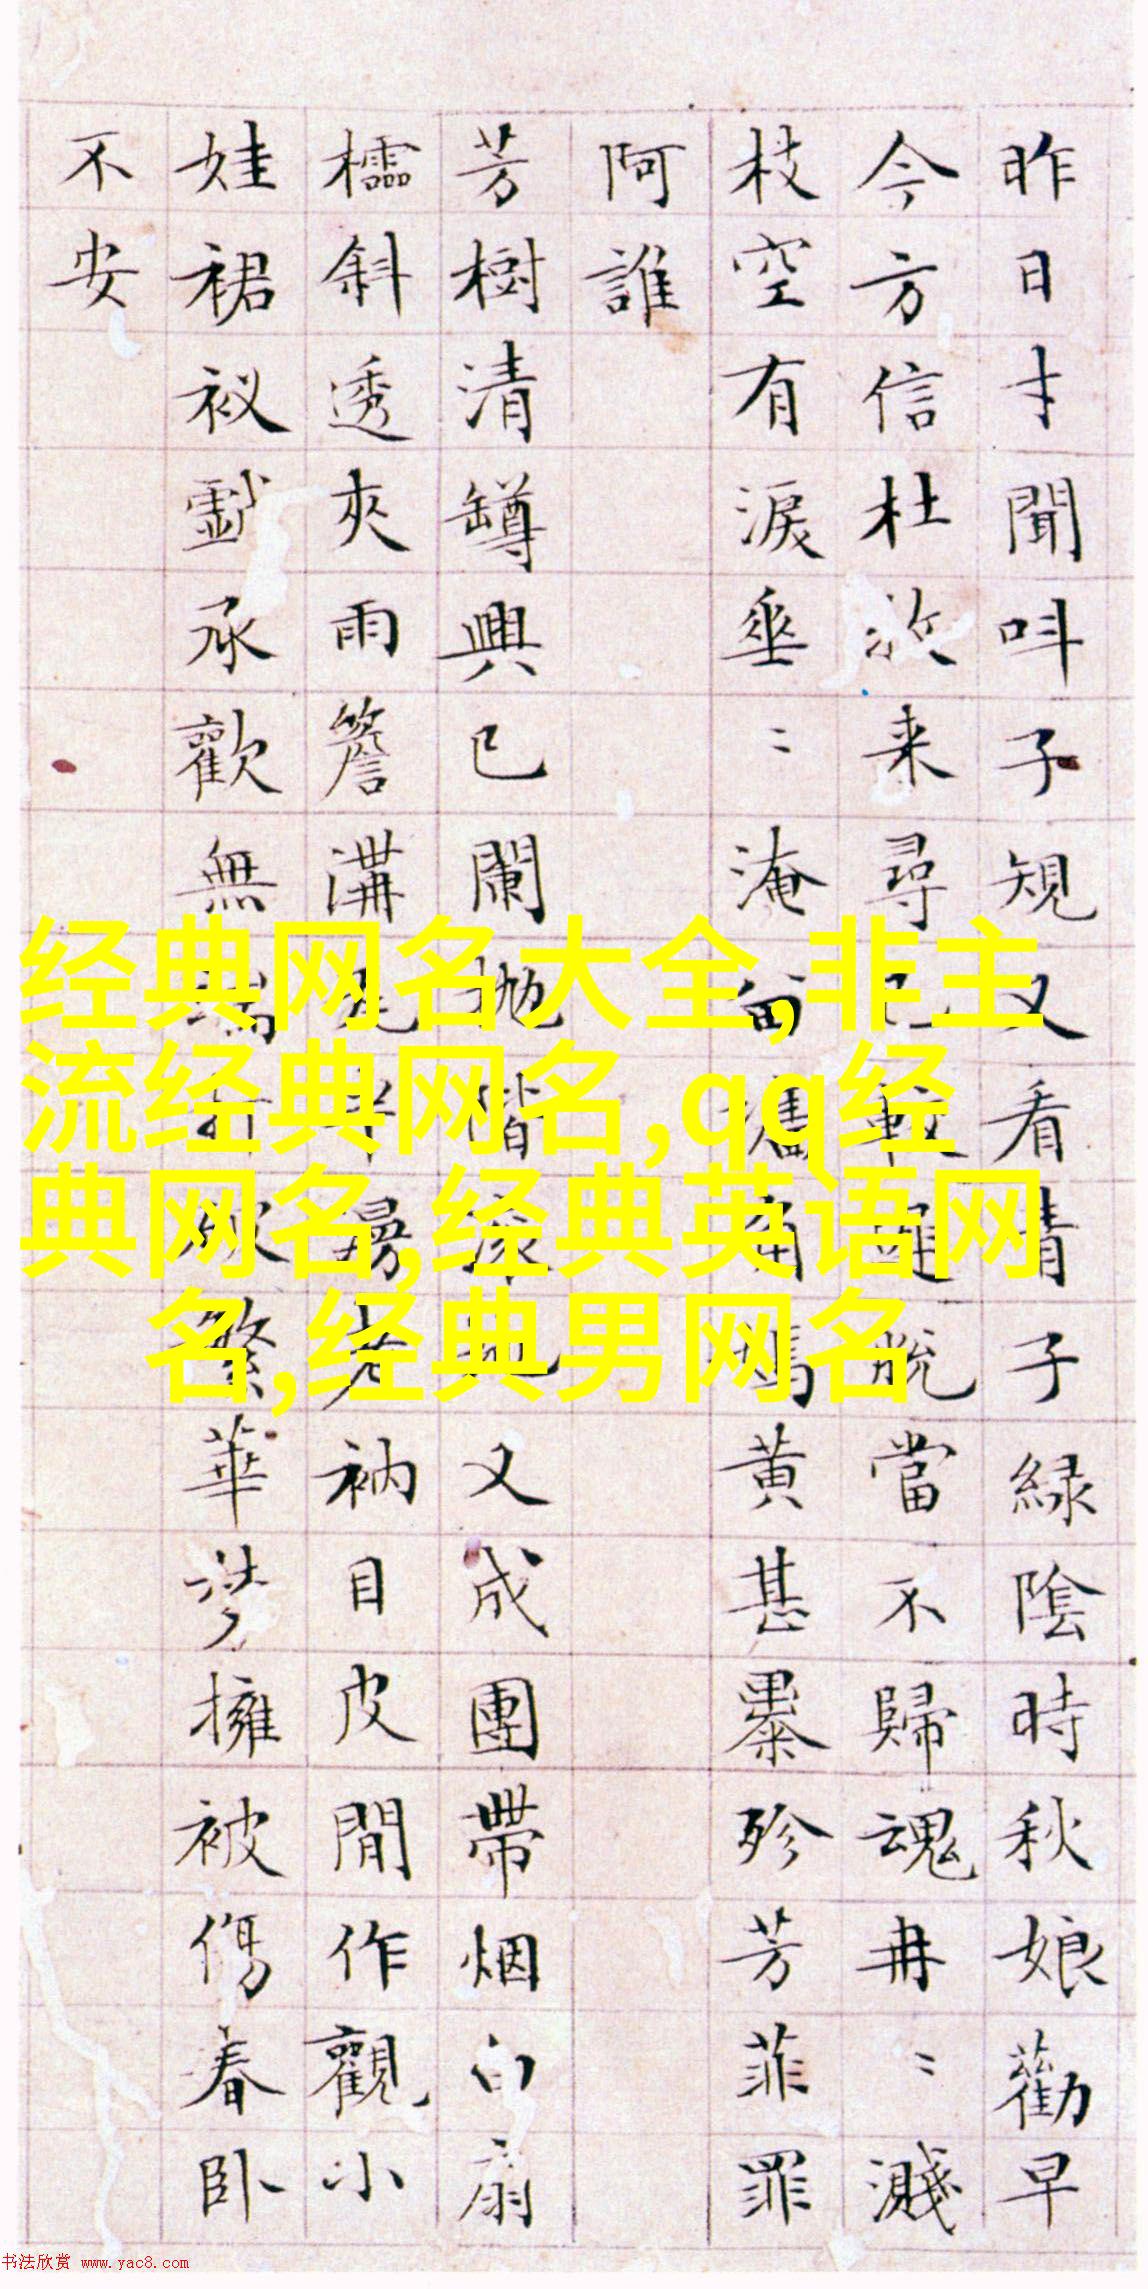 昨日才聞呌子規又看青子綠陰時秋娘勸早
今方信杜牧来尋已較遲脫當不歸魂冉〻濺
枝空有淚垂〻淹留馬黄甚㬥殄芳菲罪
阿誰
芳樹清罇興已闌抛堦又成團帶烟白扇
櫺斜透夾雨簷溝衲目皮閒作觀小
娃裙衩戲承歡無端繁華夢擁被傷春卧
不安
经典网名大全,非主
流经典网名,qq经
典网名,经典英语网
名,经典男网名
书法欣赏 www.yac8.com